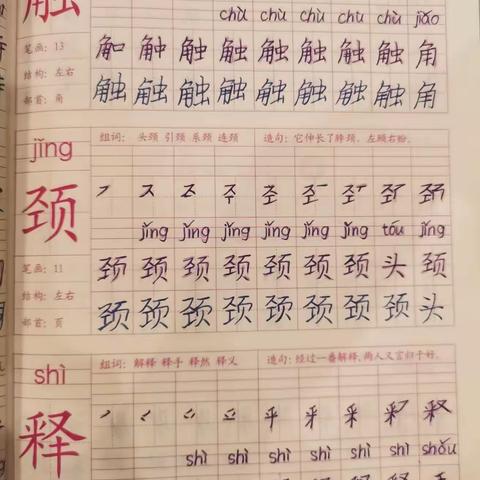 触 chù chù chù chù chù jiǎo
笔画：13 触 触 触 触 触 触 角
结构：左右
部首：角 触 触 触 触 触 触 触 角
jǐng 组词：头颈 引颈 系颈 连颈 造句：它伸长了脖颈，左顾右盼。
颈
jǐng jǐng jǐng jǐng jǐng jǐng tóu jǐng
笔画：11 颈 颈 颈 颈 颈 颈 颈 头 颈
结构：左右
部首：页 颈 颈 颈 颈 颈 颈 颈 颈 头
shì 组词：解释 释手 释然 释义 造句：经过一番解释，两人又言归于好。
释
shì shì shì shì shì shì shǒu